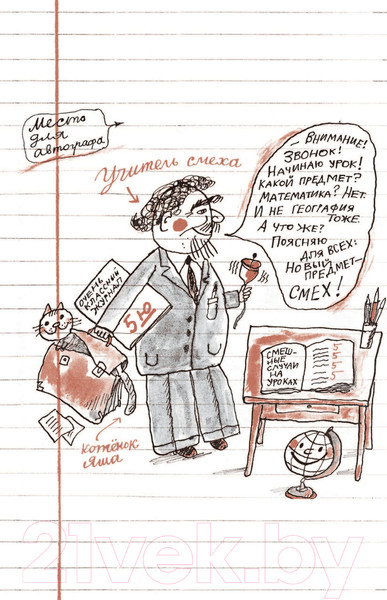 Место
для
автографа
Учитель смеха
— Внимание!
Звонок!
Начинаю урок!
Какой предмет?
Математика? Нет.
И не география
тоже.
А что же?
Поясняю
для всех:
Новый
предмет—
смех!
Очень
классный
журнал
5Ю
Смеш-
ные
случаи
на
уроках
5
5
5
5
котёнок
Яша
21vek.by